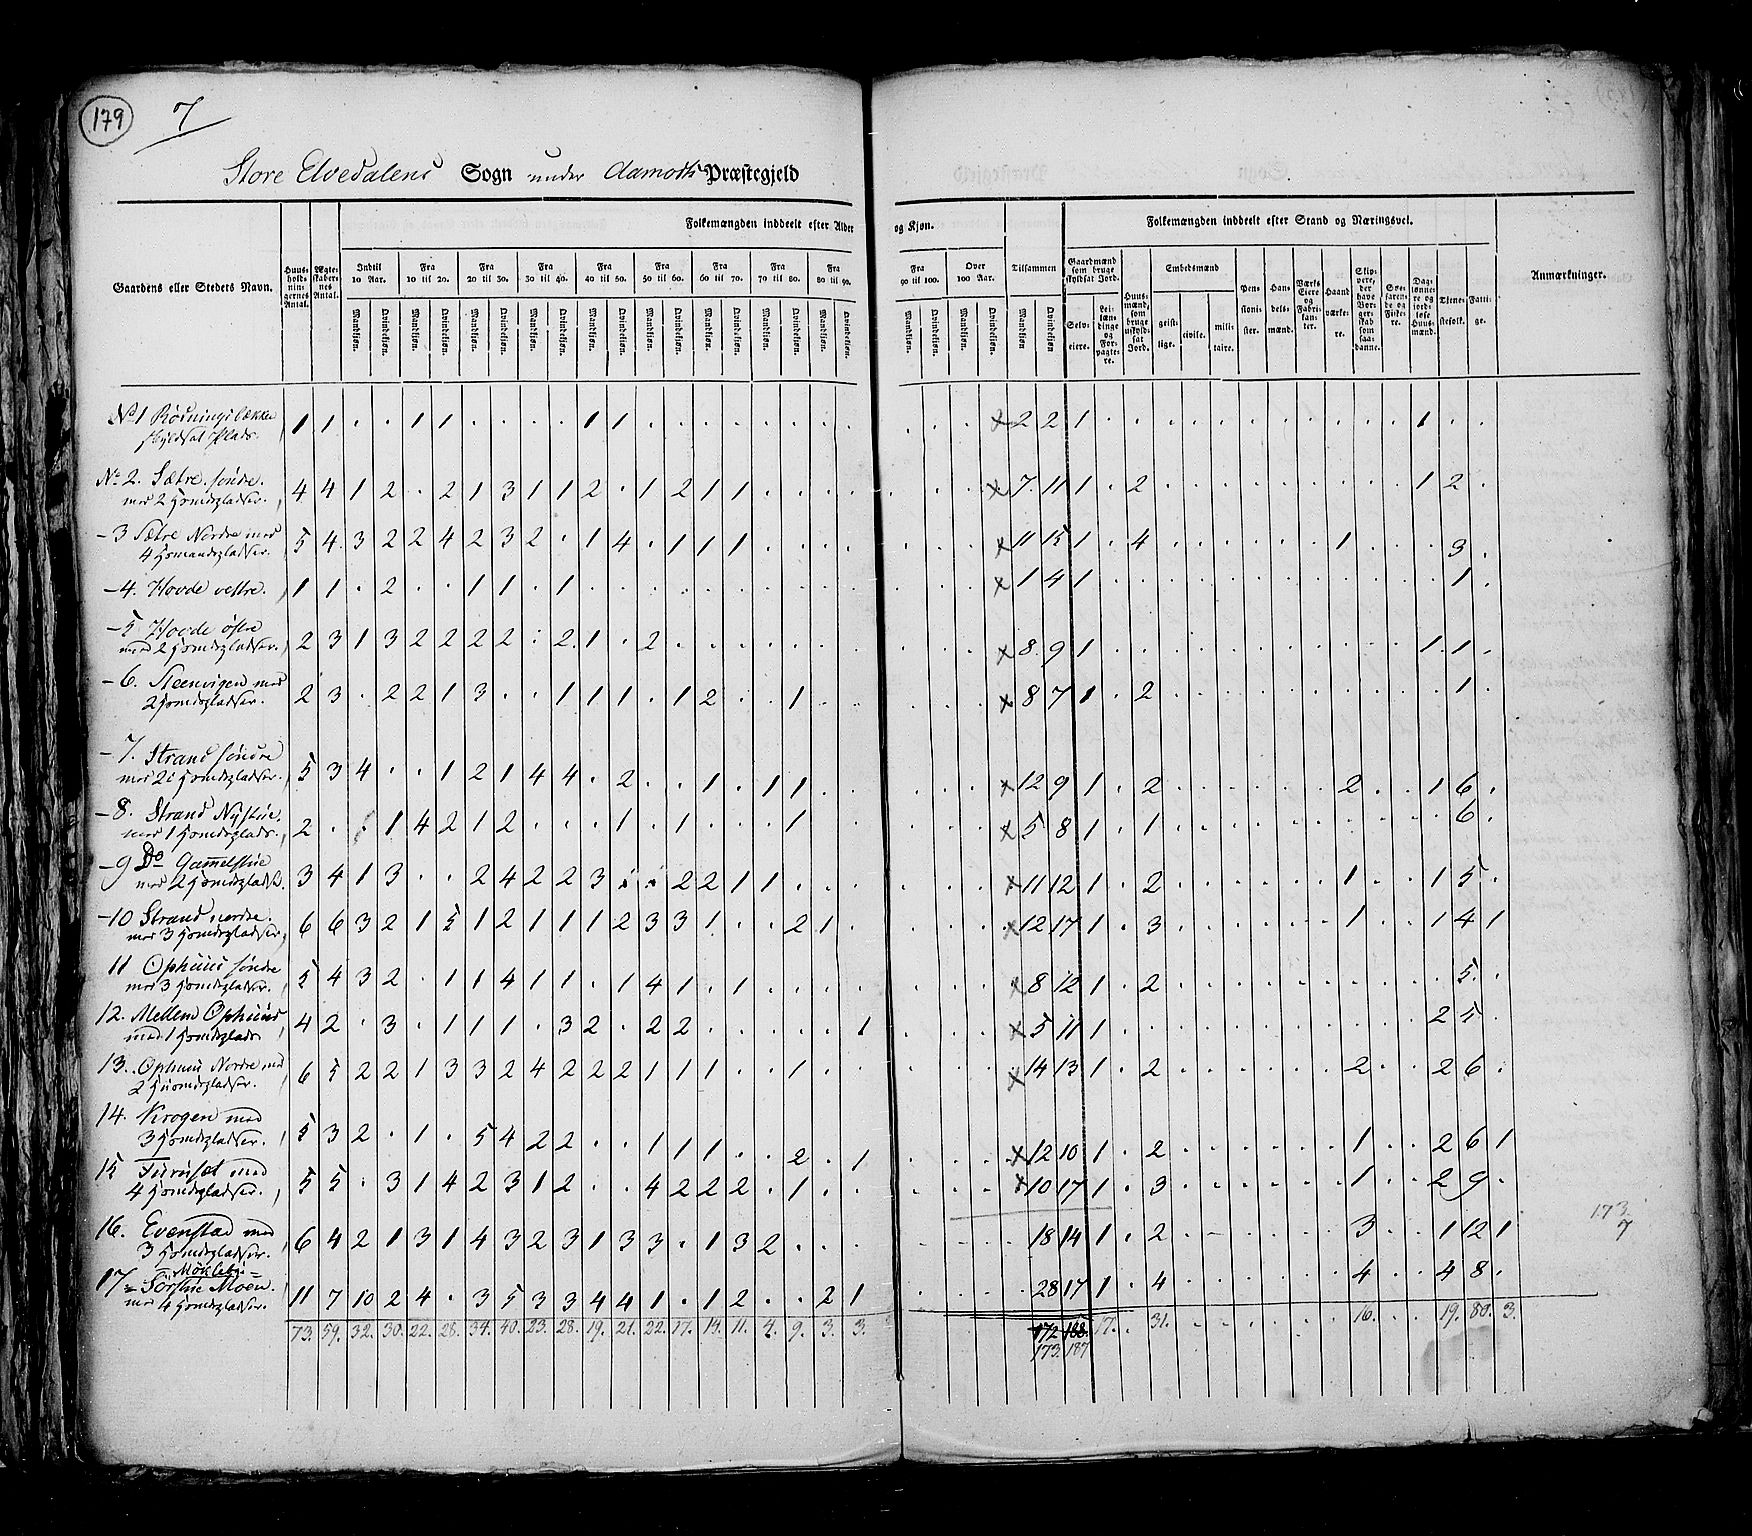 179
7
Store Elvedalens Sogn under Aamodts Præstegjeld
Gaardens eller Stedets Navn.
Huus-holdningernes Antal.
Ægteskabernes Antal.
Folkemængden inddeelt efter Alder og Kjøn.
Indtil 10 Aar. Fra 10 til 20. Fra 20 til 30. Fra 30 til 40. Fra 40 til 50. Fra 50 til 60. Fra 60 til 70. Fra 70 til 80. Fra 80 til 90. Fra 90 til 100. Over 100 Aar. Tilsammen
Mandkjøn. Qvindekjøn.
Folkemængden inddeelt efter Stand og Næringsvei.
Gaardmænd som bruge skyldsat Jord.
Selveiere.
Leilændinge og Forpagtere.
Huusmænd, som bruge uskyldsat Jord.
Embedsmænd
geistlige. civile. militaire.
Pensionister.
Handelsmænd.
Værks Eiere og Fabrikanter.
Haandværkere.
Søefarende og Fiskere.
Tjenestefolk.
Fattige.
Anmærkninger.
No 1 Skyldsat Plads. 1 1 . . 1 1 . . . . 1 1 . . . . . . . . 2 2 1 . . . . . . . . . . . . 1 . .
No 2. Sætre søndre. med 2 4 4 1 2 . 2 1 3 1 1 2 . 1 2 1 1 . . . . 7 11 1 . 2 . . . . . . . . . . 1 2 .
3 Sætre Nordre med 4 5 4 3 2 2 4 2 3 2 . 1 4 . 1 1 1 . . . . 11 15 1 . 4 . . . . . . 1 . . . 3 .
4. Hovde vestre. 1 1 . 2 . . 1 1 . 1 . . . . . . . . . . 1 4 1 . . . . . . . . . . . . . 1 .
5 Hovde østre med 2 2 3 1 3 2 2 2 2 . 2 1 . 2 . . . . . . . 8 9 1 . . . . . . . . . . . . 1 1 .
6. Steenvigen med 2 2 3 . 2 2 1 3 . . 1 1 1 . 1 2 . . 1 . . 8 7 1 . 2 . . . . . . . . . . . 1 .
7. Strand søndre med 2 5 3 4 . . 1 2 1 4 4 . 2 . . 1 . 1 1 . . 12 9 1 . 2 . . . . . . 2 . . 1 6 .
8. Strand Nystue. med 1 2 . . 1 4 2 1 2 . . . 1 . 1 . . . 1 . . 5 8 1 . 1 . . . . . . . . . . . 6 .
9 Do Gammelstue med 2 3 4 1 3 . . 2 4 2 2 3 . . 2 2 1 1 . . . 11 12 1 . 2 . . . . . . 1 . . 1 5 .
10 Strand nordre. med 3 6 6 3 2 1 5 1 2 1 1 1 2 3 3 1 . . 2 1 . 12 17 1 . 3 . . . . . . 1 . . 1 4 1
11 Ophuus søndre med 3 5 4 3 2 . 1 1 4 1 1 . 1 4 1 . 1 . . . . 8 12 1 . 2 . . . . . . . . . . 5 .
12. Mellem Ophuus med 1 4 2 . 3 . 1 1 1 . 3 2 . 2 2 . . . . . 1 5 11 1 . . . . . . . . . . . 2 5 .
13. Ophuus Nordre med 2 6 5 2 2 1 3 3 2 4 2 2 2 1 1 1 . . 1 . . 14 13 1 . 2 . . . . . . 2 . . 2 6 .
14. Krogen med 3 5 3 2 . 1 . 5 4 2 2 . . 1 1 1 . . 2 . 1 12 10 1 . 2 . . . . . . 1 . . 2 6 1
15 Furuset med 4 5 5 . 3 1 4 2 3 1 2 . . 4 2 2 2 . 1 . . 10 17 1 . 3 . . . . . . 1 . . 2 9 .
16. Evenstad med 3 6 4 2 1 3 1 4 3 2 3 1 3 3 . 1 3 2 . . . 18 14 1 . 2 . . . . . . 3 . . 1 12 1
17 Møklebye Moen. med 4 11 7 10 2 4 . 3 5 3 3 4 4 1 . 1 2 . . 2 1 28 17 1 . 4 . . . . . . 4 . . 4 8 .
73. 59. 32. 30. 22. 28. 34. 40. 23. 28. 19. 21. 22. 17. 14. 11. 4. 9. 3. 3. 172 188 17. . 31. . . . . . . 16. . . 19. 80. 3.
173. 187
173.
7